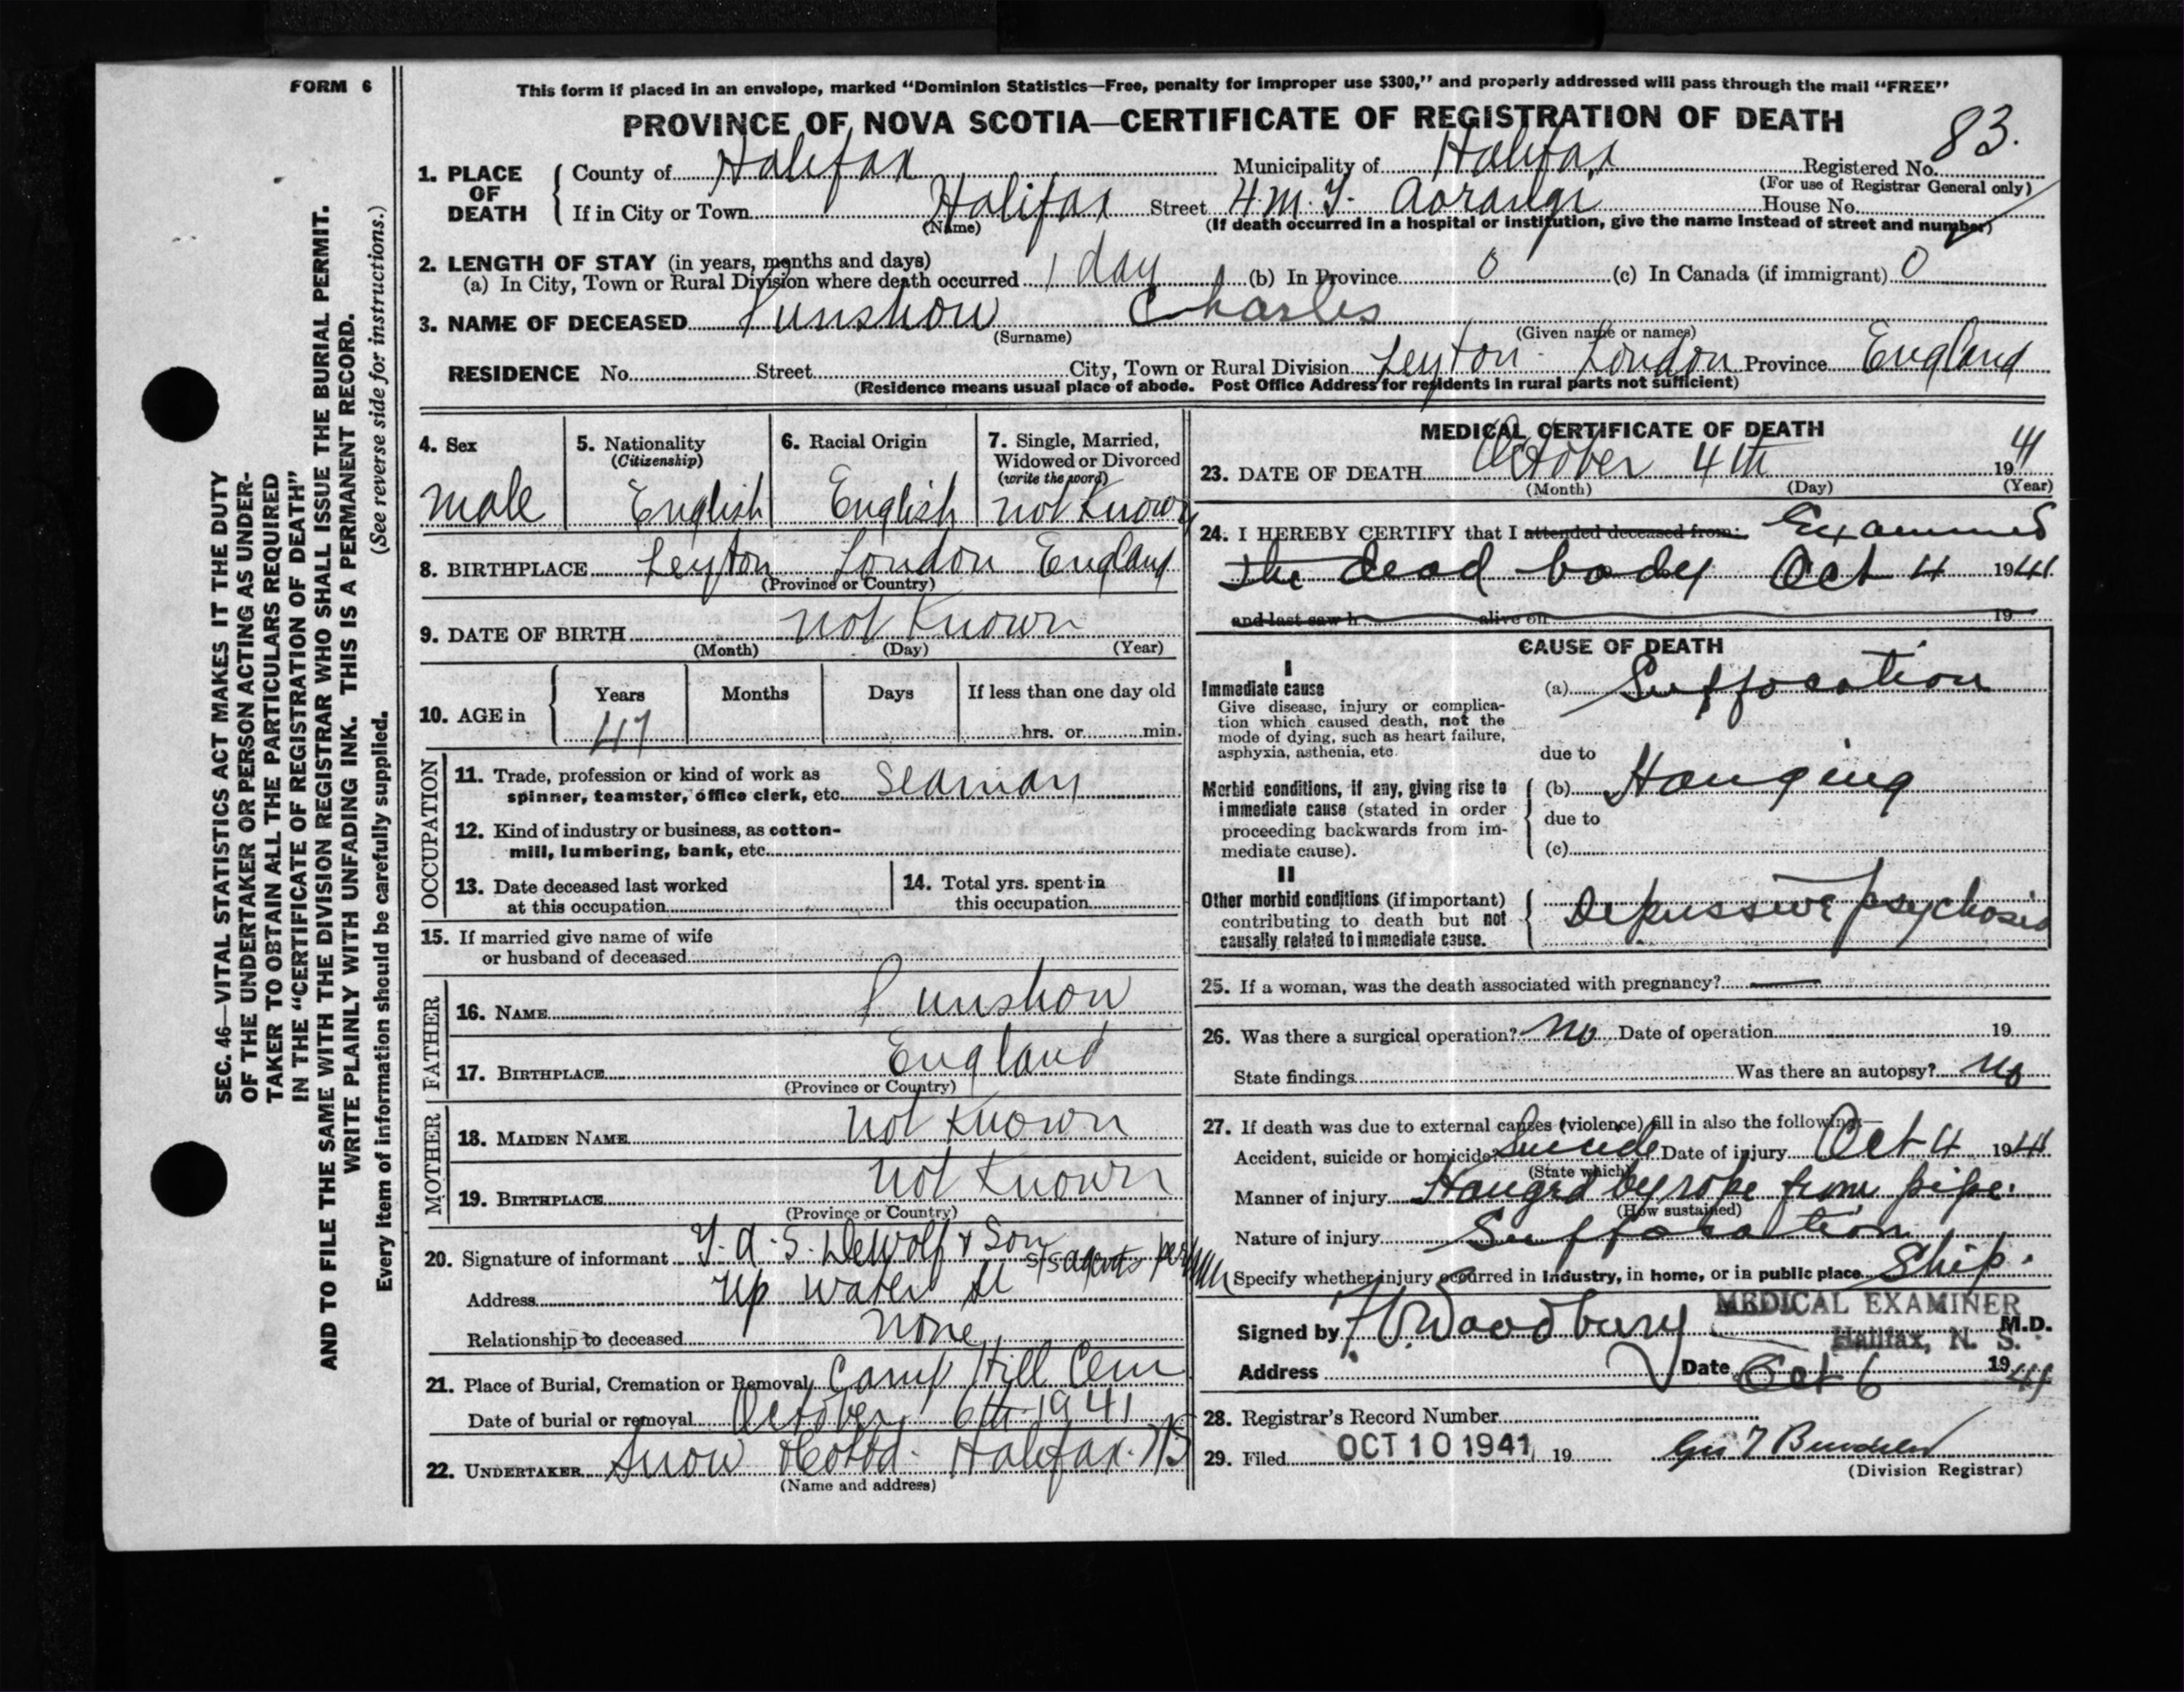 FORM 6
This form if placed in an envelope, marked "Dominion Statistics—Free, penalty for improper use $300," and properly addressed will pass through the mail "FREE"
PROVINCE OF NOVA SCOTIA—CERTIFICATE OF REGISTRATION OF DEATH
83.
1. PLACE OF DEATH
County of Halifax Municipality of Halifax Registered No.
(For use of Registrar General only)
If in City or Town Halifax Street H.M.T. Aorangi House No.
(Name) (If death occurred in a hospital or institution, give the name instead of street and number)
2. LENGTH OF STAY (in years, months and days)
(a) In City, Town or Rural Division where death occurred 1 day (b) In Province 0 (c) In Canada (if immigrant) 0
3. NAME OF DECEASED Punshon Charles
(Surname) (Given name or names)
RESIDENCE No. Street City, Town or Rural Division Leyton - London Province England
(Residence means usual place of abode. Post Office Address for residents in rural parts not sufficient)
4. Sex
male
5. Nationality
(Citizenship)
English
6. Racial Origin
English
7. Single, Married,
Widowed or Divorced
(write the word)
not Known
8. BIRTHPLACE Leyton London England
(Province or Country)
9. DATE OF BIRTH not Known
(Month) (Day) (Year)
10. AGE in Years Months Days If less than one day old
47 hrs. or min.
OCCUPATION
11. Trade, profession or kind of work as
spinner, teamster, office clerk, etc. Seaman
12. Kind of industry or business, as cotton-
mill, lumbering, bank, etc.
13. Date deceased last worked
at this occupation
14. Total yrs. spent in
this occupation
15. If married give name of wife
or husband of deceased
FATHER
16. NAME Punshon
17. BIRTHPLACE England
(Province or Country)
MOTHER
18. MAIDEN NAME not Known
19. BIRTHPLACE not Known
(Province or Country)
20. Signature of informant T.A.S. DeWolf & Son S/S agents per
Address Up Water St
Relationship to deceased none
21. Place of Burial, Cremation or Removal Camp Hill Cem
Date of burial or removal October 6th 1941
22. UNDERTAKER Snow & Co Ltd. Halifax. NS
(Name and address)
MEDICAL CERTIFICATE OF DEATH
23. DATE OF DEATH October 4th 1941
(Month) (Day) (Year)
24. I HEREBY CERTIFY that I attended deceased from: Examined
the dead body Oct 4 1941
and last saw h alive on 19
CAUSE OF DEATH
I
Immediate cause
Give disease, injury or complica-
tion which caused death, not the
mode of dying, such as heart failure,
asphyxia, asthenia, etc.
(a) Suffocation
due to
Morbid conditions, if any, giving rise to
immediate cause (stated in order
proceeding backwards from im-
mediate cause).
(b) Hanging
due to
(c)
II
Other morbid conditions (if important)
contributing to death but not
causally related to immediate cause.
Depressive psychosis
25. If a woman, was the death associated with pregnancy? —
26. Was there a surgical operation? No Date of operation 19
State findings Was there an autopsy? No
27. If death was due to external causes (violence) fill in also the following:—
Accident, suicide or homicide? Suicide Date of injury Oct 4 1941
(State which)
Manner of injury Hanged by rope from pipe.
(How sustained)
Nature of injury Suffocation
Specify whether injury occurred in industry, in home, or in public place Ship.
MEDICAL EXAMINER
Signed by Woodbury M.D.
Halifax, N. S.
Address Date Oct 6 1941
28. Registrar's Record Number
29. Filed OCT 10 1941 19
(Division Registrar)
SEC. 46—VITAL STATISTICS ACT MAKES IT THE DUTY
OF THE UNDERTAKER OR PERSON ACTING AS UNDER-
TAKER TO OBTAIN ALL THE PARTICULARS REQUIRED
IN THE "CERTIFICATE OF REGISTRATION OF DEATH"
AND TO FILE THE SAME WITH THE DIVISION REGISTRAR WHO SHALL ISSUE THE BURIAL PERMIT.
WRITE PLAINLY WITH UNFADING INK. THIS IS A PERMANENT RECORD.
Every item of information should be carefully supplied. (See reverse side for instructions.)